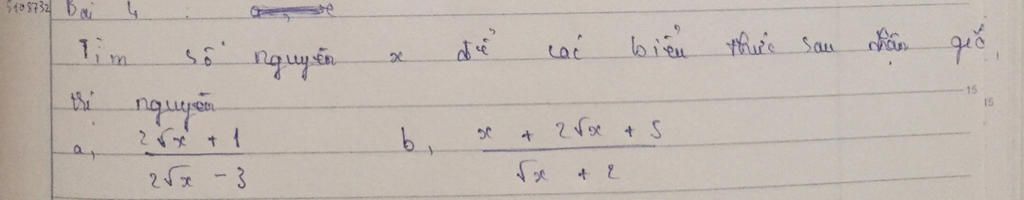 5108732
Bài 4
Tìm số nguyên x để các biểu thức sau nhận giá
trị nguyên
a, (2√x + 1)/(2√x - 3) b, (x + 2√x + 5)/(√x + 2)
15
15